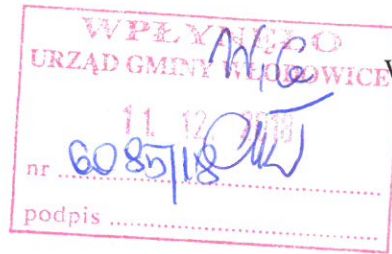 WPŁYNĘŁO
URZĄD GMINY WŁODOWICE
11. 12. 2018
nr 6085/18
podpis